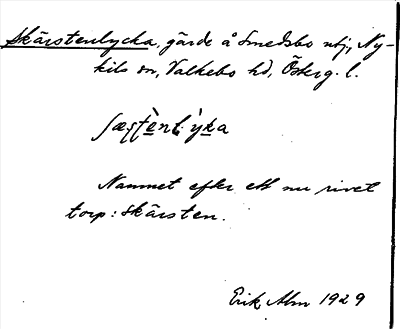 Skärstenlycka, gärde å Smedsbo utj., Ny-
kils sn, Valkebo hd, Österg. l.
Namnet efter ett nu rivet
torp: Skärsten.
Erik Alm 1929